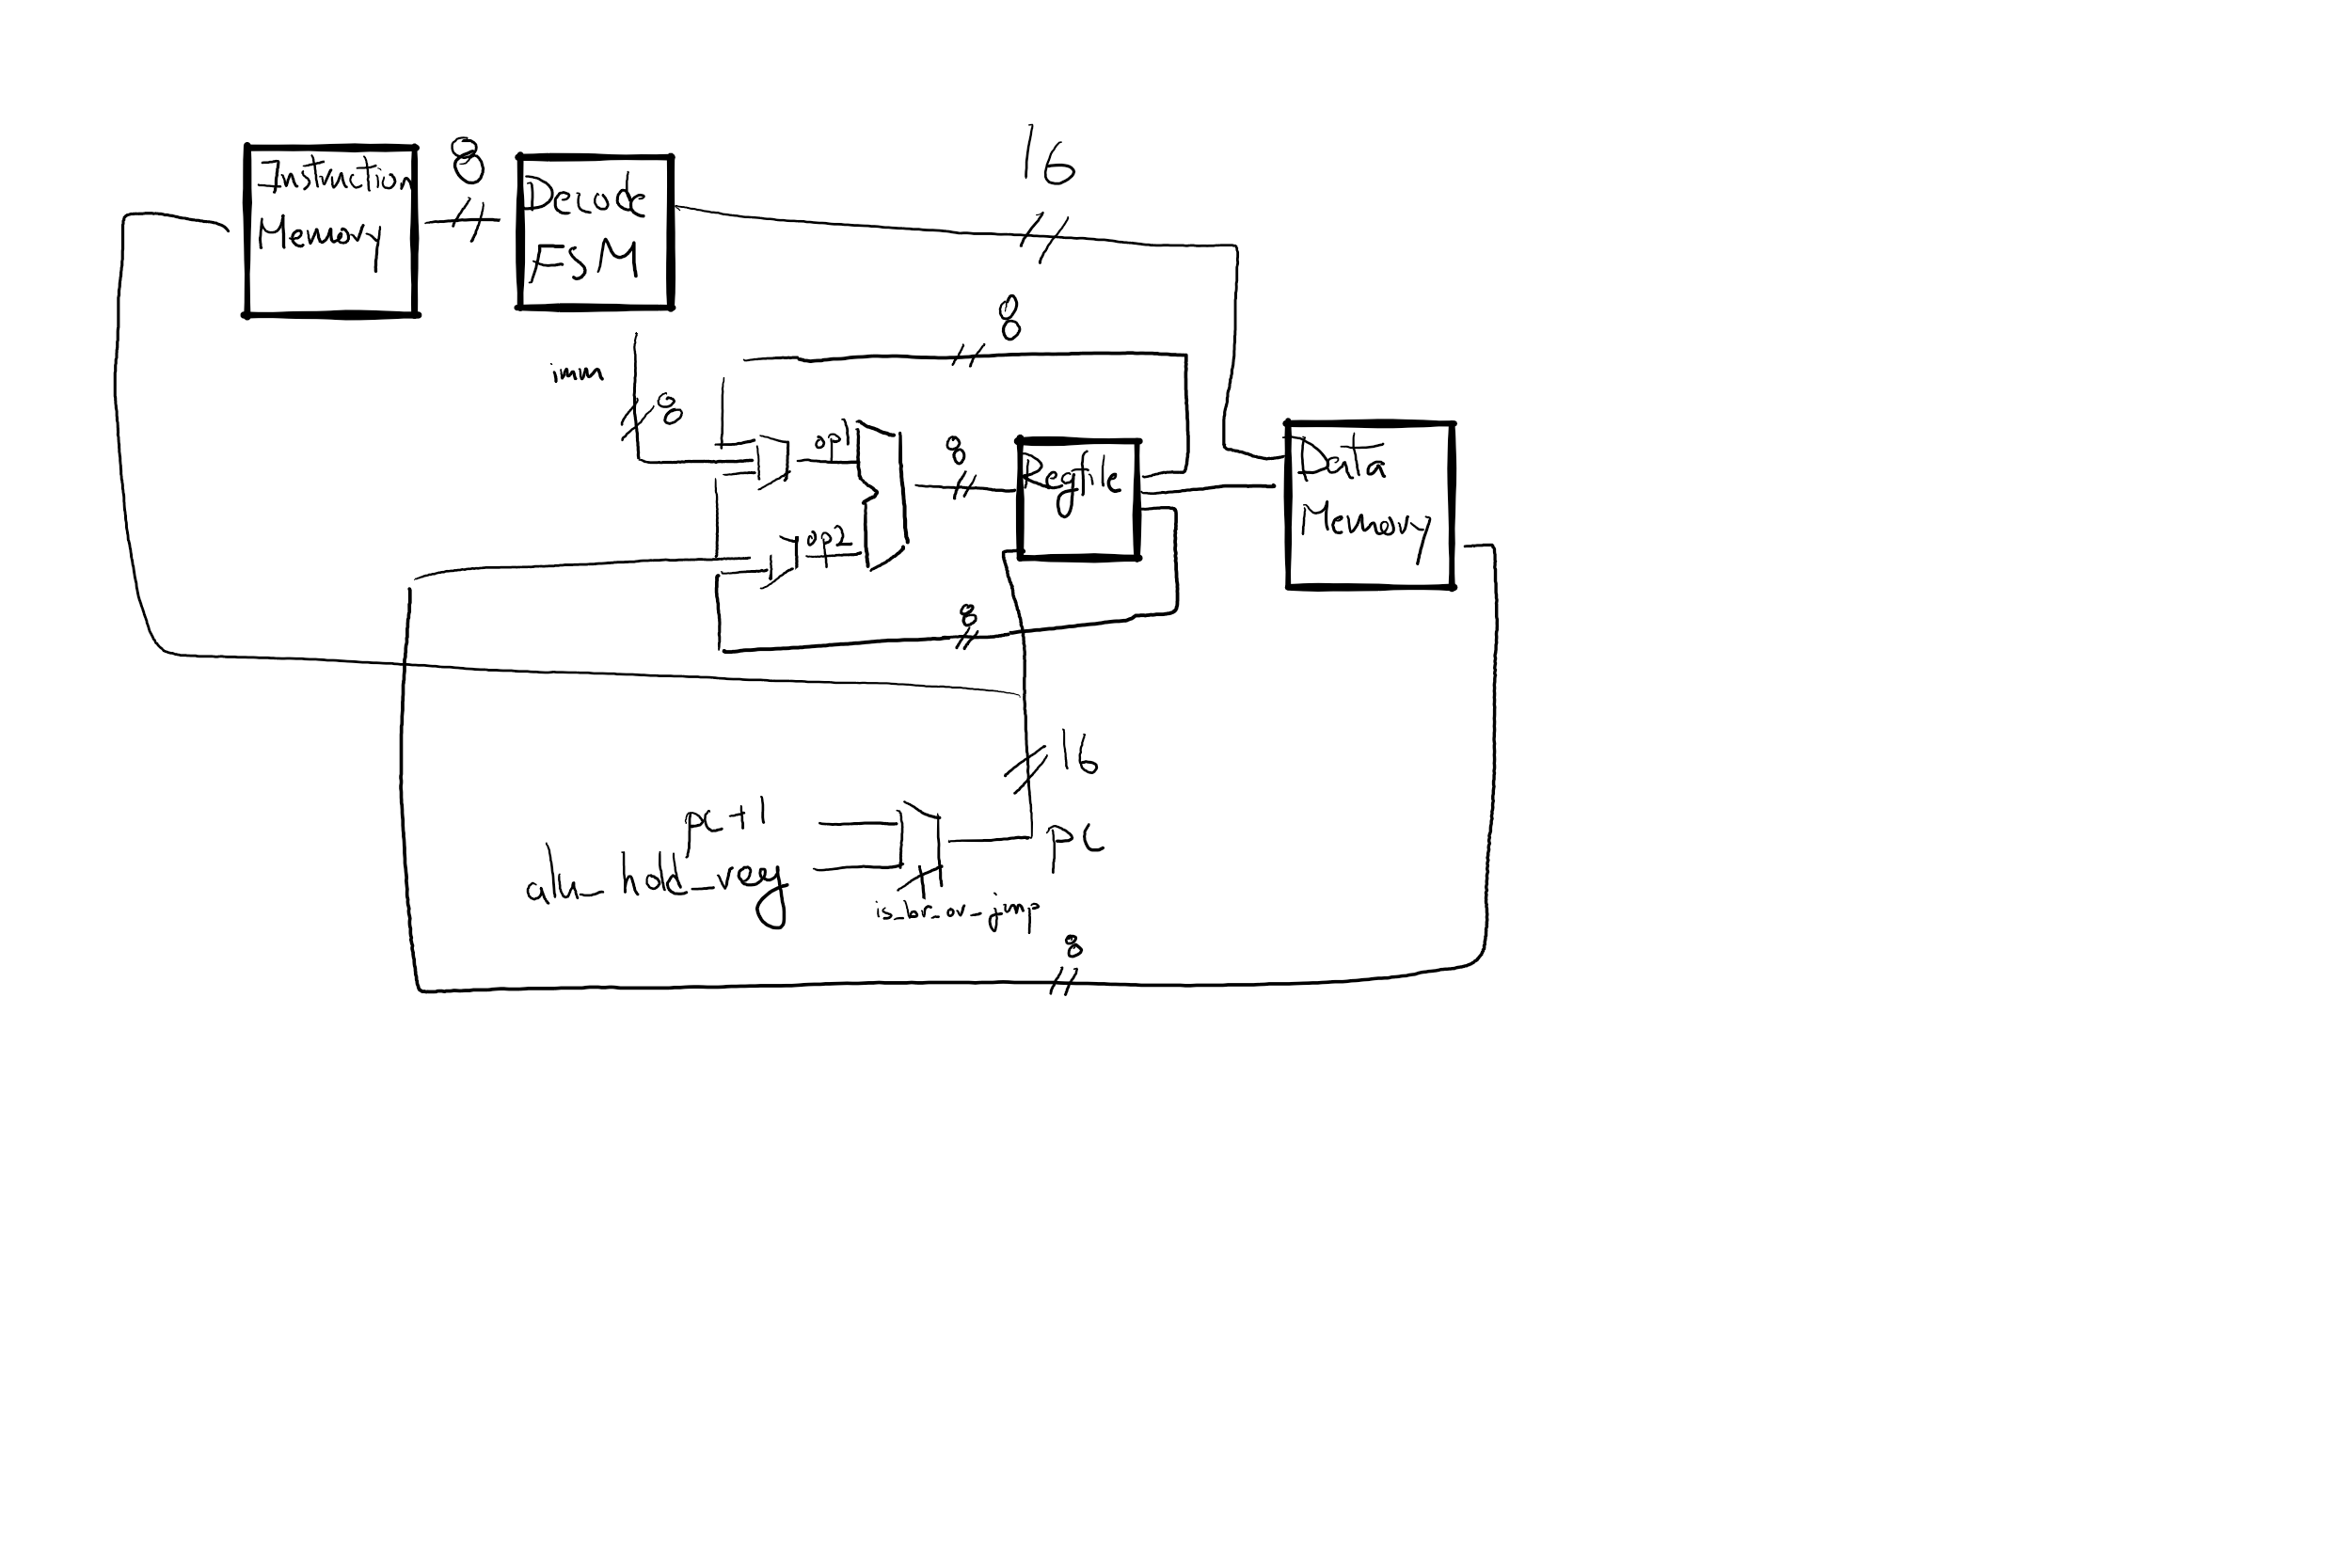 Instruction
Memory
8
Decode
FSM
16
8
imm
8
op1
8
Regfile
Data
Memory
op2
8
16
pc+1
alu_hold_reg
PC
is_br_or_jmp
8